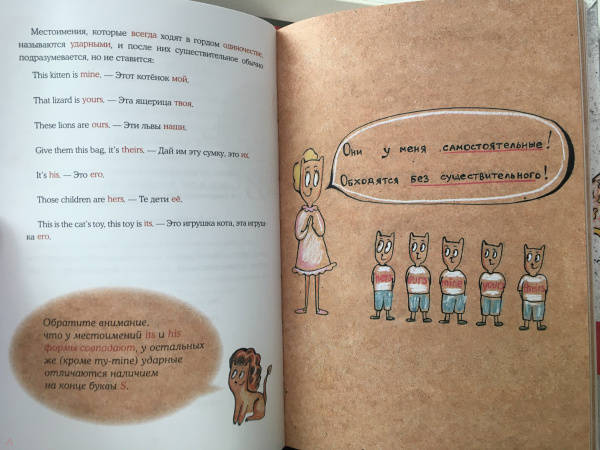 Местоимения, которые всегда ходят в гордом одиночестве,
называются ударными, и после них существительное обычно
подразумевается, но не ставится:
This kitten is mine. — Этот котёнок мой.
That lizard is yours. — Эта ящерица твоя.
These lions are ours. — Эти львы наши.
Give them this bag, it's theirs. — Дай им эту сумку, это их.
It's his. — Это его.
Those children are hers. — Те дети её.
This is the cat's toy, this toy is its. — Это игрушка кота, эта игруш-
ка его.
Обратите внимание,
что у местоимений its и his
формы совпадают, у остальных
же (кроме my-mine) ударные
отличаются наличием
на конце буквы S.
Они у меня самостоятельные!
Обходятся без существительного!
ours mine